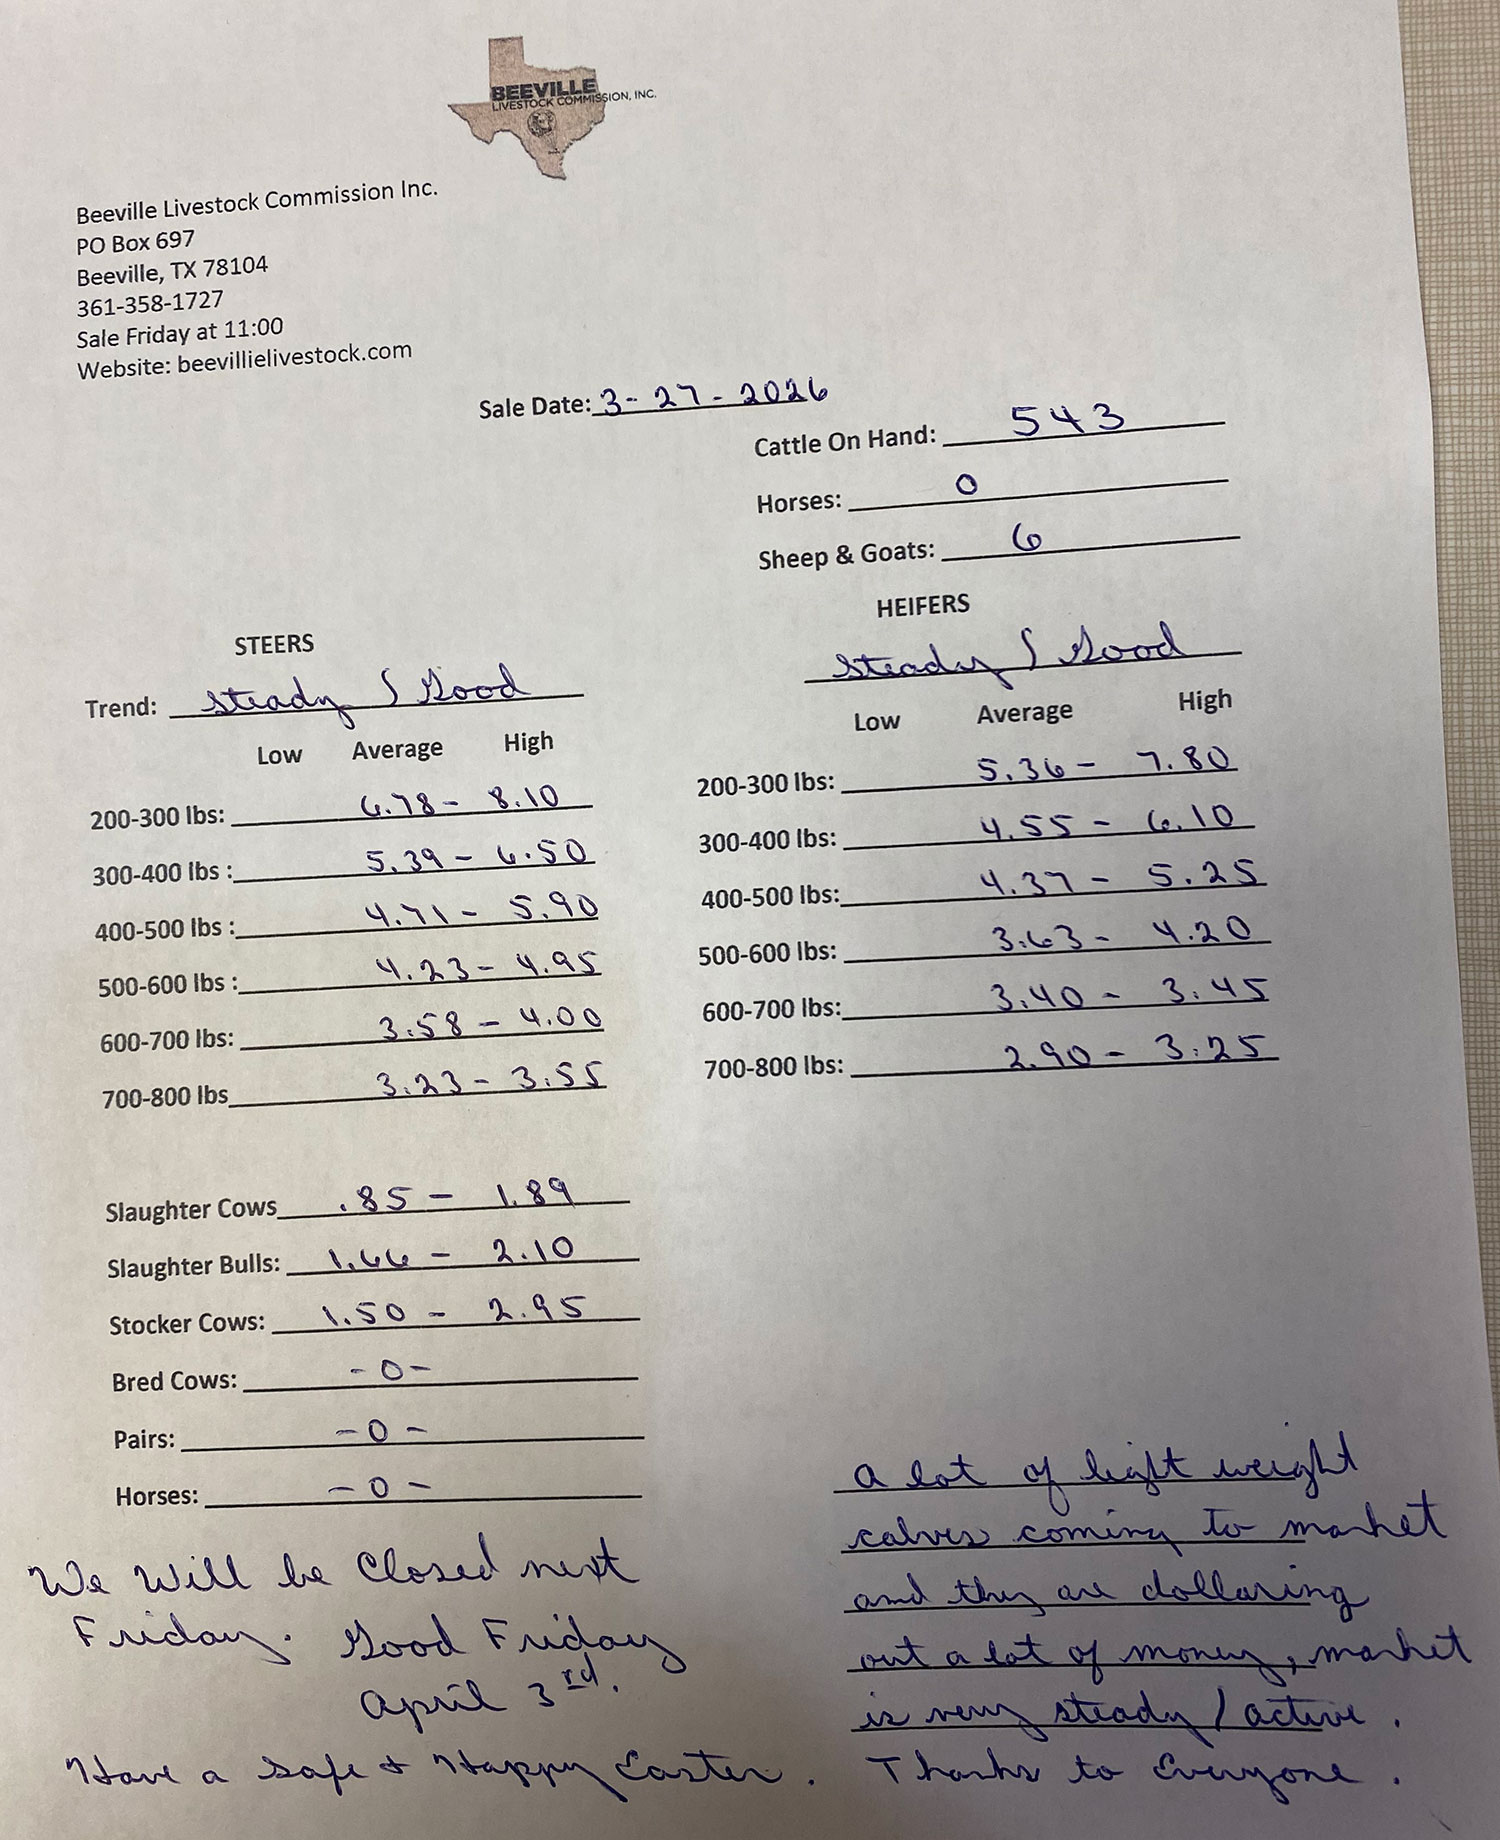 BEEVILLE
LIVESTOCK COMMISSION, INC.
Beeville Livestock Commission Inc.
PO Box 697
Beeville, TX 78104
361-358-1727
Sale Friday at 11:00
Website: beevillielivestock.com
Sale Date: 3-27-2026
Cattle On Hand: 543
Horses: 0
Sheep & Goats: 6
STEERS
Trend: Steady / Good
Low Average High
200-300 lbs: 6.78 - 8.10
300-400 lbs : 5.39 - 6.50
400-500 lbs : 4.71 - 5.90
500-600 lbs : 4.23 - 4.95
600-700 lbs: 3.58 - 4.00
700-800 lbs 3.23 - 3.55
HEIFERS
Steady / Good
Low Average High
200-300 lbs: 5.36 - 7.80
300-400 lbs: 4.55 - 6.10
400-500 lbs: 4.37 - 5.25
500-600 lbs: 3.63 - 4.20
600-700 lbs: 3.40 - 3.45
700-800 lbs: 2.90 - 3.25
Slaughter Cows .85 - 1.89
Slaughter Bulls: 1.66 - 2.10
Stocker Cows: 1.50 - 2.95
Bred Cows: -0-
Pairs: -0-
Horses: -0-
We Will be Closed next
Friday. Good Friday
April 3rd.
Have a safe + Happy Easter.
A lot of light weight
calves coming to market
and they are dollaring
out a lot of money, market
is very steady / active.
Thanks to Everyone.